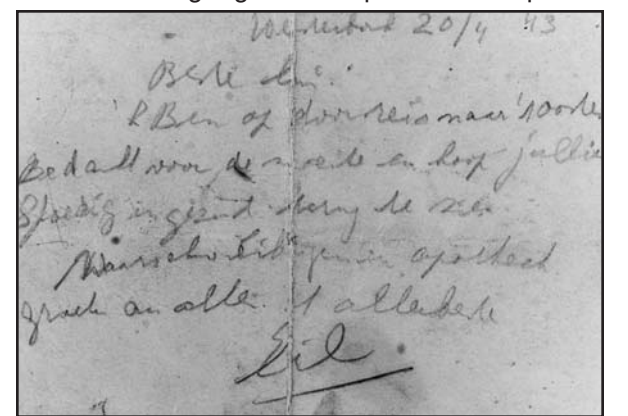 Westerbork 20/4 43
Beste
k Ben op doorreis naar 't oosten
Bedankt voor de moeite en hoop jullie
spoedig en gezond terug te zien
Waarschuw apotheek
groeten aan allen. 't allerbeste